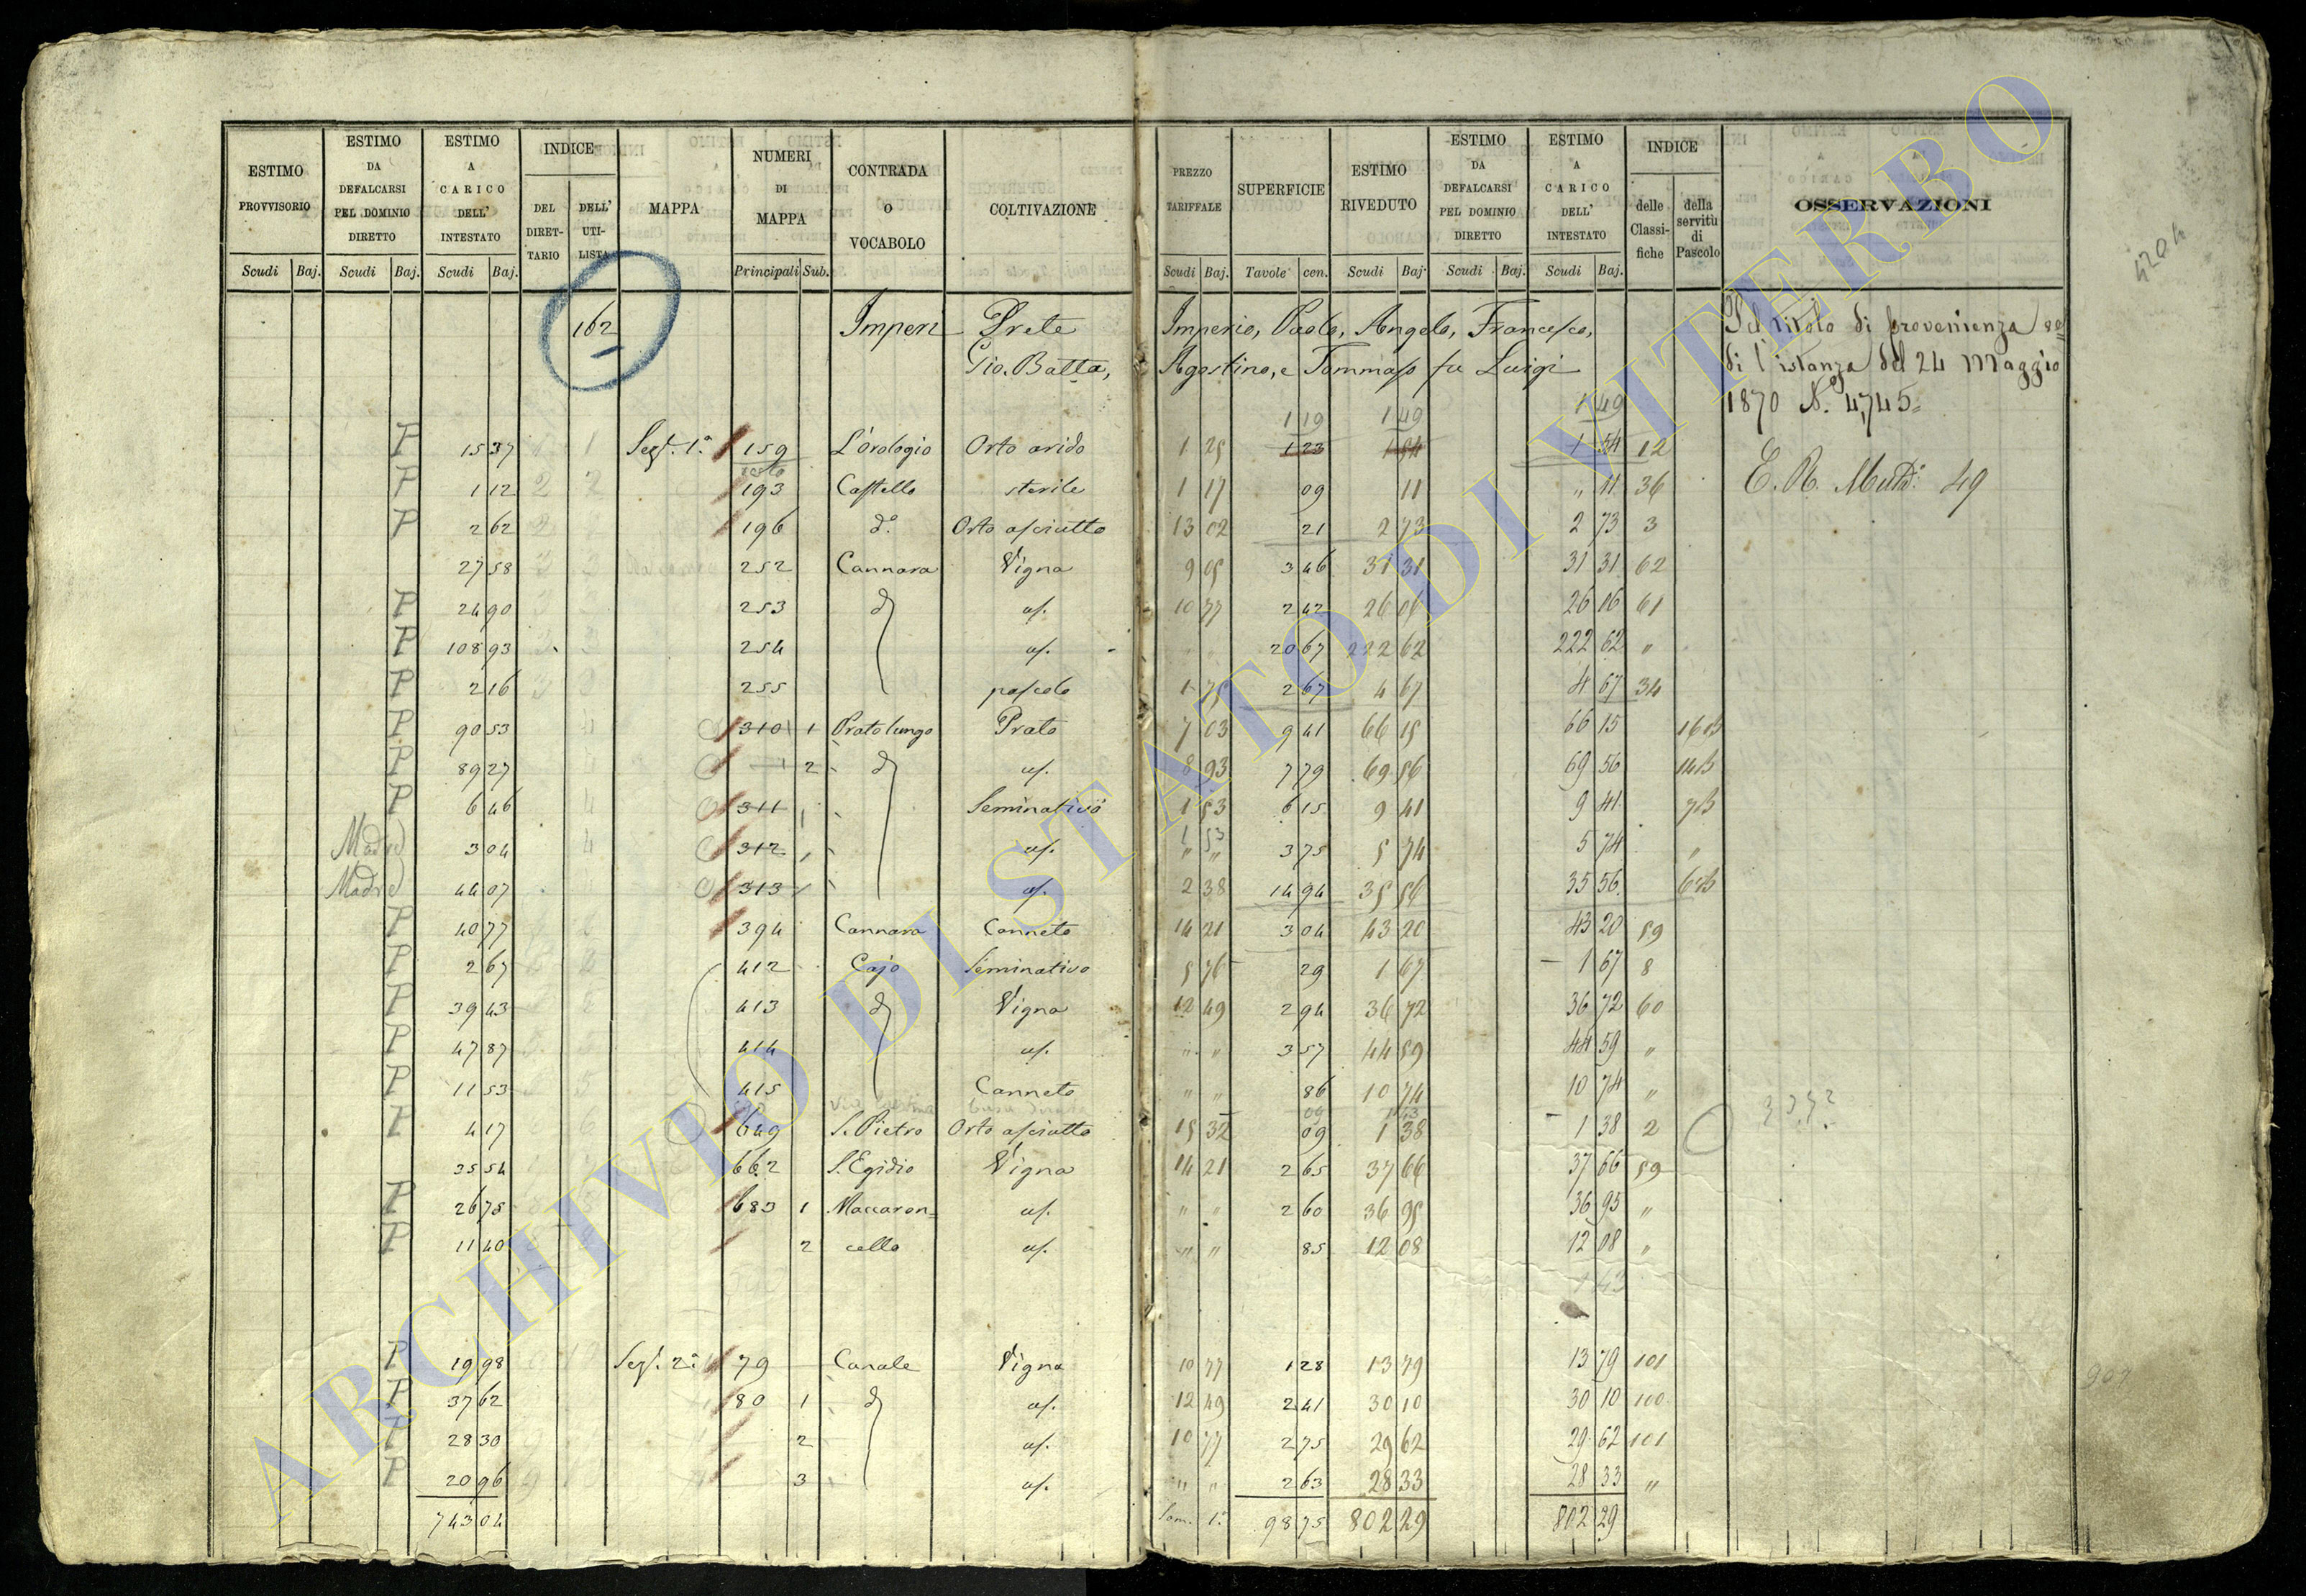 ESTIMO PROVVISORIO | ESTIMO DA DEFALCARSI PEL DOMINIO DIRETTO | ESTIMO A CARICO DELL' INTESTATO | INDICE DEL DIRETTARIO | DELL' UTILISTA | MAPPA | NUMERI DI MAPPA | CONTRADA O VOCABOLO | COLTIVAZIONE | PREZZO TARIFFALE | SUPERFICIE | ESTIMO RIVEDUTO | ESTIMO DA DEFALCARSI PEL DOMINIO DIRETTO | ESTIMO A CARICO DELL' INTESTATO | INDICE delle Classifiche | della servitù di Pascolo | OSSERVAZIONI
Scudi Baj. Scudi Baj. Scudi Baj. Principali Sub. Scudi Baj. Tavole cen. Scudi Baj. Scudi Baj. Scudi Baj.
162 Imperi Prete Imperio, Paolo, Angelo, Francesco,
Gio. Batta, Agostino, e Tommaso fu Luigi
Pel titolo di provenienza
di l'istanza del 24 Maggio
1870 N. 4,745
1 19 1 49 1 49
P 15 37 1 Sez. 1a 159 L'orologio Orto arido 1 25 1 23 1 54 1 54 12
resto
P 1 12 2 2 193 Castello sterile 1 17 09 11 " 11 36
E. R. Mutd. 49
P 2 62 196 do Orto asciutto 13 02 21 2 73 2 73 3
27 58 3 3 252 Cannara Vigna 9 05 3 46 31 31 31 31 62
P 24 90 3 3 253 d us. 10 77 2 42 26 06 26 06 61
P 108 93 3 3 254 us. 20 67 222 62 222 62 "
P 2 16 3 3 255 pascolo 1 75 2 67 4 67 4 67 34
P 90 53 4 310 1 Prato lungo Prato 7 03 9 41 66 15 66 15 16B
P 89 27 2 d us. 8 93 7 79 69 56 69 56 14B
P 6 46 4 311 Seminativo 1 53 6 15 9 41 9 41 7B
1 53
Madre 3 04 4 312 us. " " 3 75 5 74 5 74 "
Madre 44 07 313 us. 2 38 14 94 35 56 35 56 6B
P 40 77 394 Cannara Canneto 14 21 3 04 43 20 43 20 59
P 2 67 412 Cajo Seminativo 5 76 29 1 67 1 67 8
P 39 43 413 d Vigna 12 49 2 94 36 72 36 72 60
P 47 87 414 us. " " 3 57 44 59 44 59 "
P 11 53 5 415 Canneto " " 86 10 74 10 74 "
09 1 43
P 4 17 6 649 S. Pietro Orto asciutto 15 32 09 1 38 1 38 2
35 54 662 S. Egidio Vigna 14 21 2 65 37 66 37 66 59
P 26 75 683 1 Maccaron= us. " " 2 60 36 95 36 95 "
P 11 40 2 cello us. " " 85 12 08 12 08 "
1 43
P 19 98 Sez. 2a 79 Canale Vigna 10 77 1 28 13 79 13 79 101
P 37 62 80 1 d us. 12 49 2 41 30 10 30 10 100
P 28 30 2 us. 10 77 2 75 29 62 29 62 101
P 20 96 3 us. " " 2 63 28 33 28 33 "
743 04 Som. 1a 98 75 802 29 802 29
ARCHIVIO DI STATO DI VITERBO